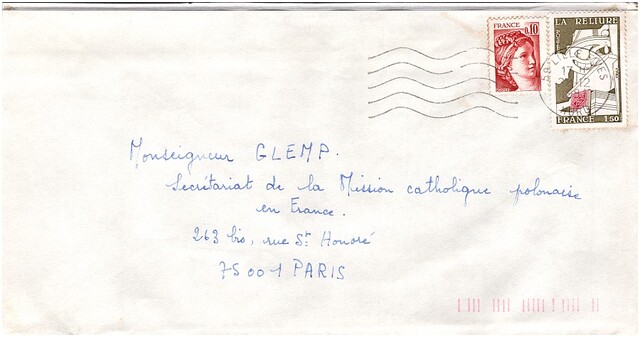 FRANCE
0,10
LA RELIURE
FRANCE 1,50
Monseigneur GLEMP.
Secrétariat de la Mission catholique polonaise
en France.
263 bis, rue St Honoré
75001 PARIS